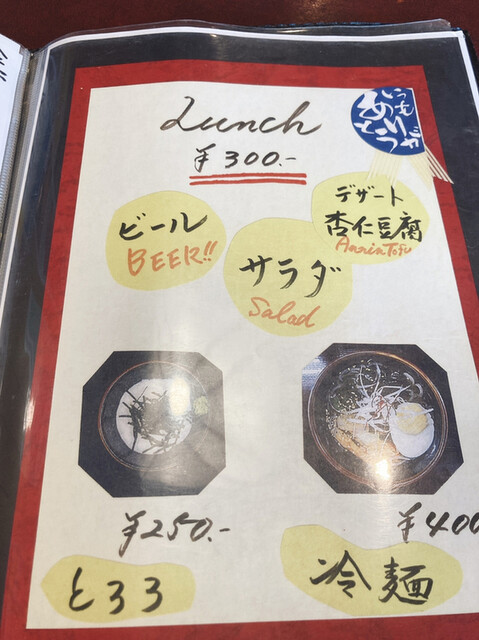 いつも
ありが
とう
Lunch
¥300.-
デザート
杏仁豆腐
AnninTofu
ビール
BEER!!
サラダ
Salad
¥250.-
¥400
とろろ
冷麺